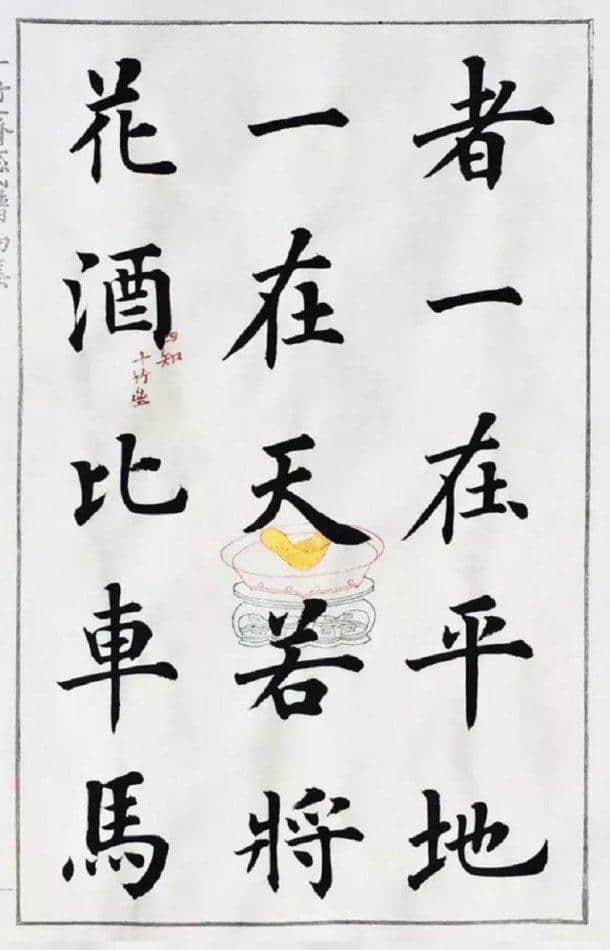 者一在平地
一在天若將
花酒比車馬
四知
十竹齋